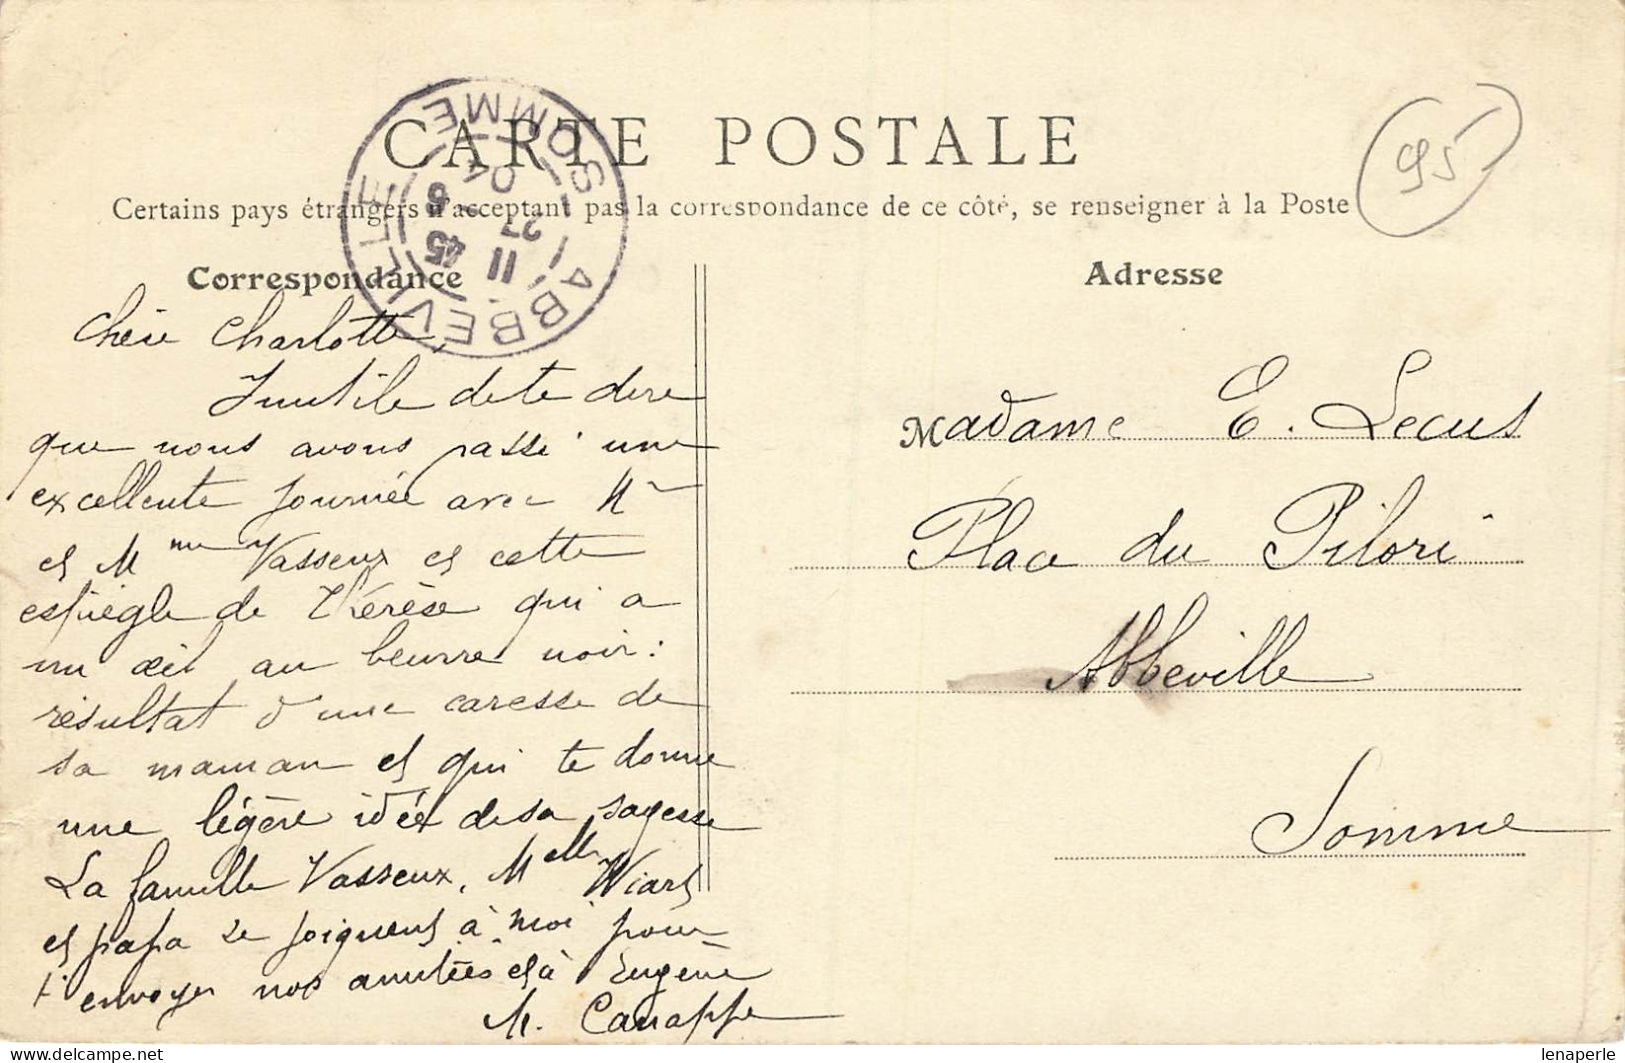 CARTE POSTALE
Certains pays étrangers n'acceptant pas la correspondance de ce côté, se renseigner à la Poste
95
ABBEVILLE
SOMME
11 45
27 - 6
04
Correspondance
Chère Charlotte,
Inutile de te dire
que nous avons passé une
excellente journée avec Mr
et Mme Vasseux et cette
espiègle de Thérèse qui a
un œil au beurre noir :
résultat d'une caresse de
sa maman et qui te donne
une légère idée de sa sagesse
La famille Vasseux, Melle Wiart
et papa se joignent à moi pour
t'envoyer nos amitiés et à Eugène
M. Canappe
Adresse
Madame E. Lecus
Place du Pilori
Abbeville
Somme
delcampe.net
lenaperle